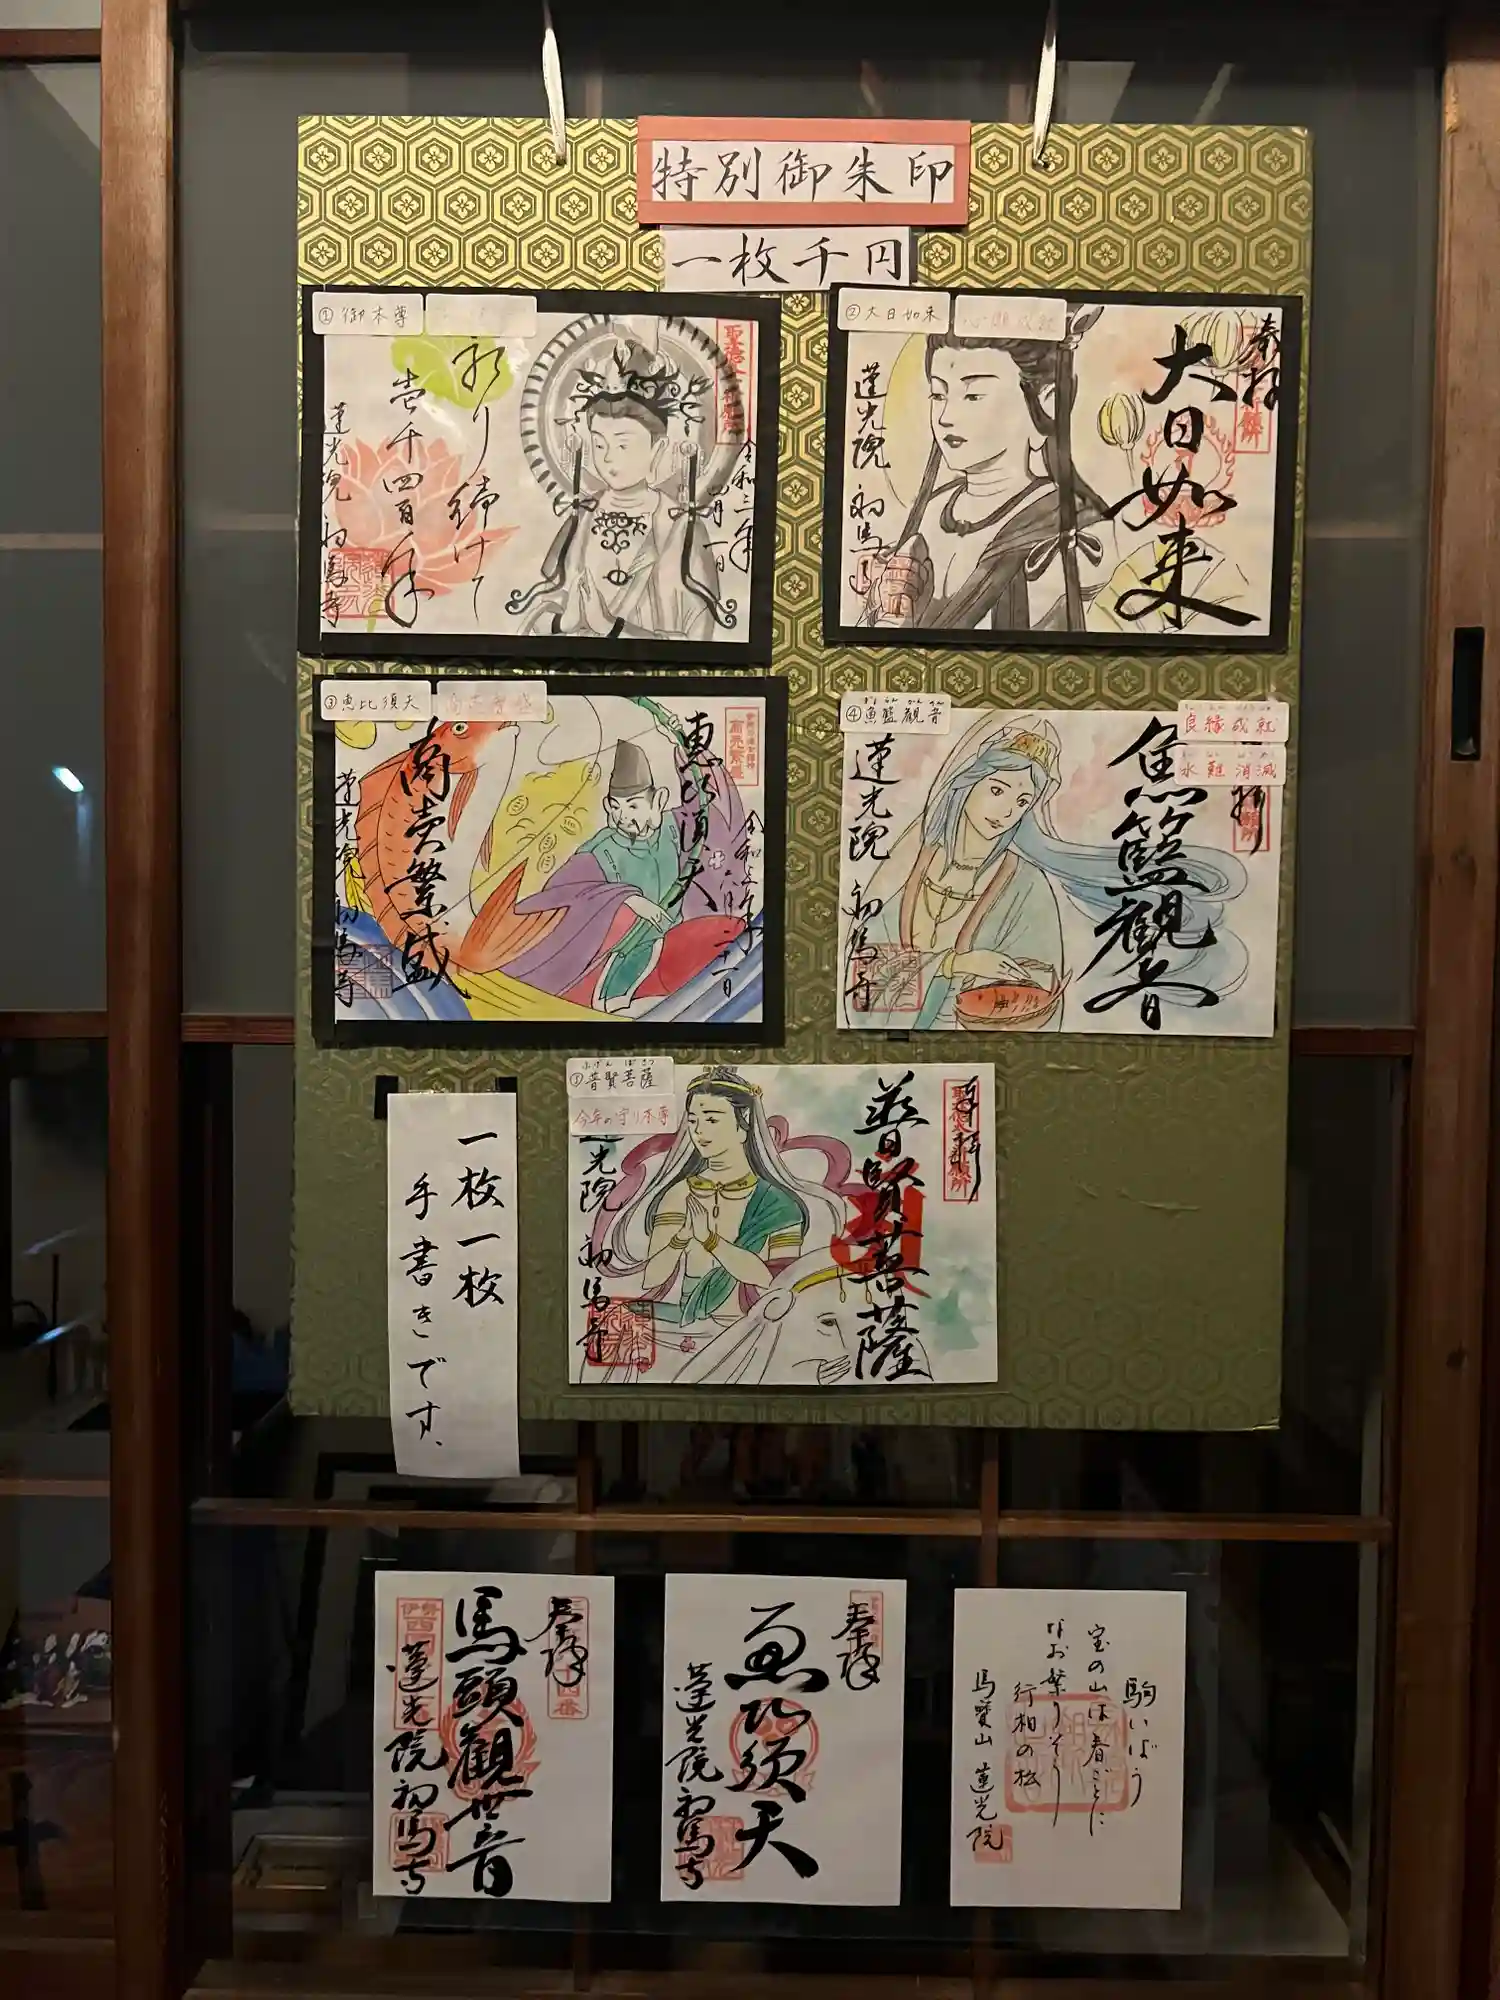 特別御朱印
一枚千円
①御本尊
祈り続けて
壱千四百年
蓮光院 初馬寺
令和三年
②大日如来
心願成就
奉拝
大日如来
蓮光院 初馬寺
③恵比須天
商売繁盛
恵比須天
商売繁盛
蓮光院 初馬寺
④魚籃観音
良縁成就
水難消滅
魚籃観音
蓮光院 初馬寺
ふげん ぼさつ
⑤普賢菩薩
今年の守り本尊
奉拝
普賢菩薩
光院 初馬寺
一枚一枚
手書きです、
奉拝
馬頭観世音
蓮光院 初馬寺
奉拝
恵比須天
蓮光院 初馬寺
駒いばう
宝の山は春ごとに
行相の松
なお栄りそう
馬宝山 蓮光院